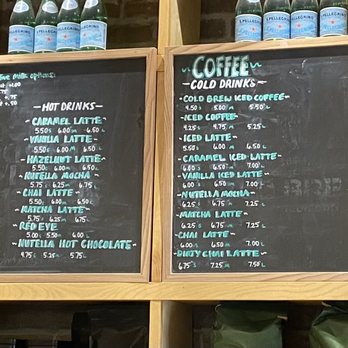 S.PELLEGRINO
S.PELLEGRINO
S.PELLEGRINO
milk options
~HOT DRINKS~
CARAMEL LATTE
5.50 S 6.00 M 6.50 L
VANILLA LATTE
5.50 S 6.00 M 6.50 L
HAZELNUT LATTE
5.50 S 6.00 M
NUTELLA MOCHA
5.75 S 6.25 M 6.75
CHAI LATTE
5.50 S 6.00 M 6.50
MATCHA LATTE
5.75 S 6.25 M 6.75
RED EYE
5.00 S 5.50 M 6.00 L
~NUTELLA HOT CHOCOLATE~
4.75 S 5.25 M 5.75 L
~COFFEE~
~COLD DRINKS~
~COLD BREW ICED COFFEE~
4.50 S 5.00 M 5.50 L
~ICED COFFEE
4.25 S 4.75 M 5.25 L
~ICED LATTE
5.50 S 6.00 M 6.50 L
~CARAMEL ICED LATTE~
6.00 S 6.50 M 7.00 L
~VANILLA ICED LATTE
6.00 S 6.50 M 7.00 L
~NUTELLA MOCHA~
6.25 S 6.75 M 7.25 L
~MATCHA LATTE~
6.25 S 6.75 M 7.25 L
~CHAI LATTE~
6.00 S 6.50 M 7.00 L
~DIRTY CHAI LATTE~
6.75 S 7.25 M 7.50 L